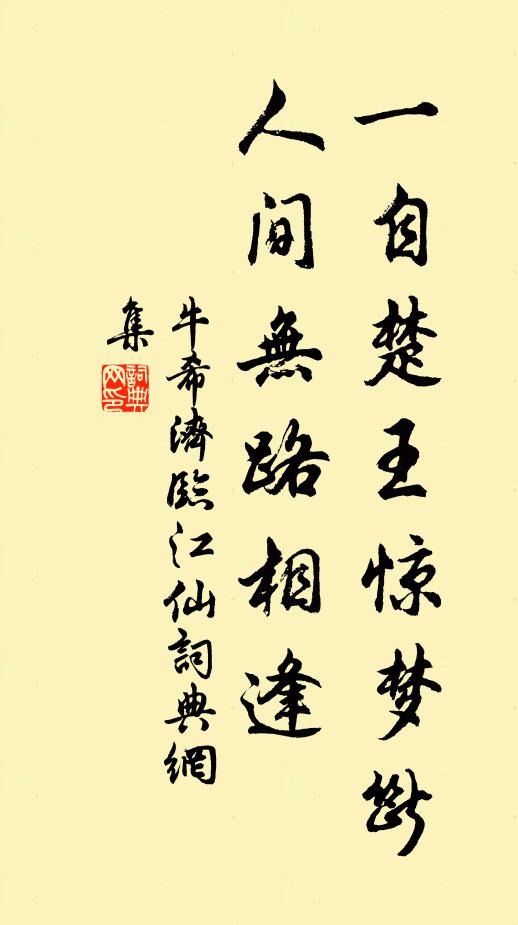 一自楚王惊梦断
人间無路相逢
牛希濟臨江仙詞典網
集
詞典网印